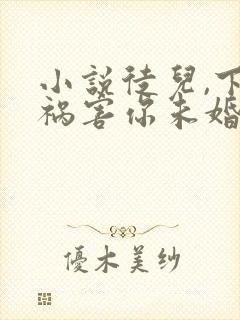 小說徒兒,下
禍害你未婚
優木美紗